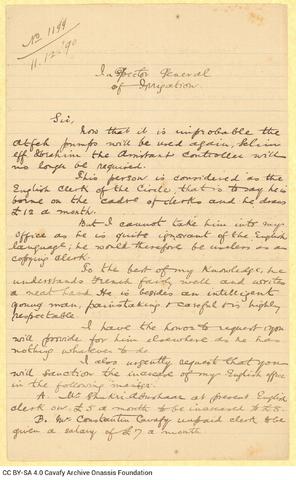 No 1199
11.12.90
Inspector General
of Irrigation
Sir,
Now that it is improbable the
Atfeh pumps will be used again, Selim
Eff Ibrahim the Assistant Controller will
no longer be required.
This person is considered as the
English Clerk of the Circle, that is to say he is
borne on the cadre of clerks and he draws
£12 a month.
But I cannot take him into my
Office as he is quite ignorant of the English
language; he would therefore be useless as an
copying clerk.
To the best of my Knowledge, he
understands French fairly well and writes
a neat hand. He is besides an intelligent
young man, painstaking & careful & highly
respectable.
I have the honor to request you
will provide for him elsewhere as he has
nothing whatever to do.
I also urgently request that you
will sanction the increase of my English office
in the following manner.
A. Mr Shukri Aboushaar at present English
clerk on £5 a month to be increased to £8.
B. Mr. Constantin Cavafy unpaid clerk to be
given a salary of £7 a month.
CC BY-SA 4.0 Cavafy Archive Onassis Foundation